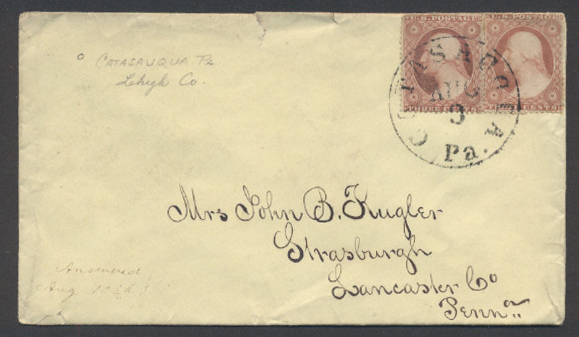 U.S. POSTAGE U.S. POSTAGE
THREE CENTS THREE CENTS
CATASAUQUA
AUG
3
Pa.
Catasauqua Pa
Lehigh Co.
Mrs John B. Kugler
Strasburgh
Lancaster Co
Penn
Answered
Aug